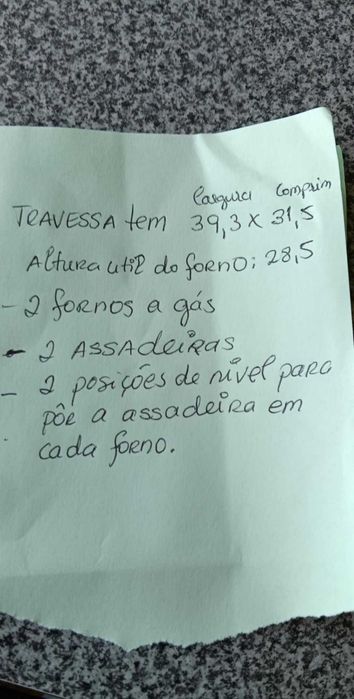 largura Comprim
TRAVESSA tem 39,3 X 31,5
Altura util do forno: 28,5
- 2 fornos a gás
- 2 ASSAdeiras
- 2 posições de nível para
pôe a assadeira em
cada forno.